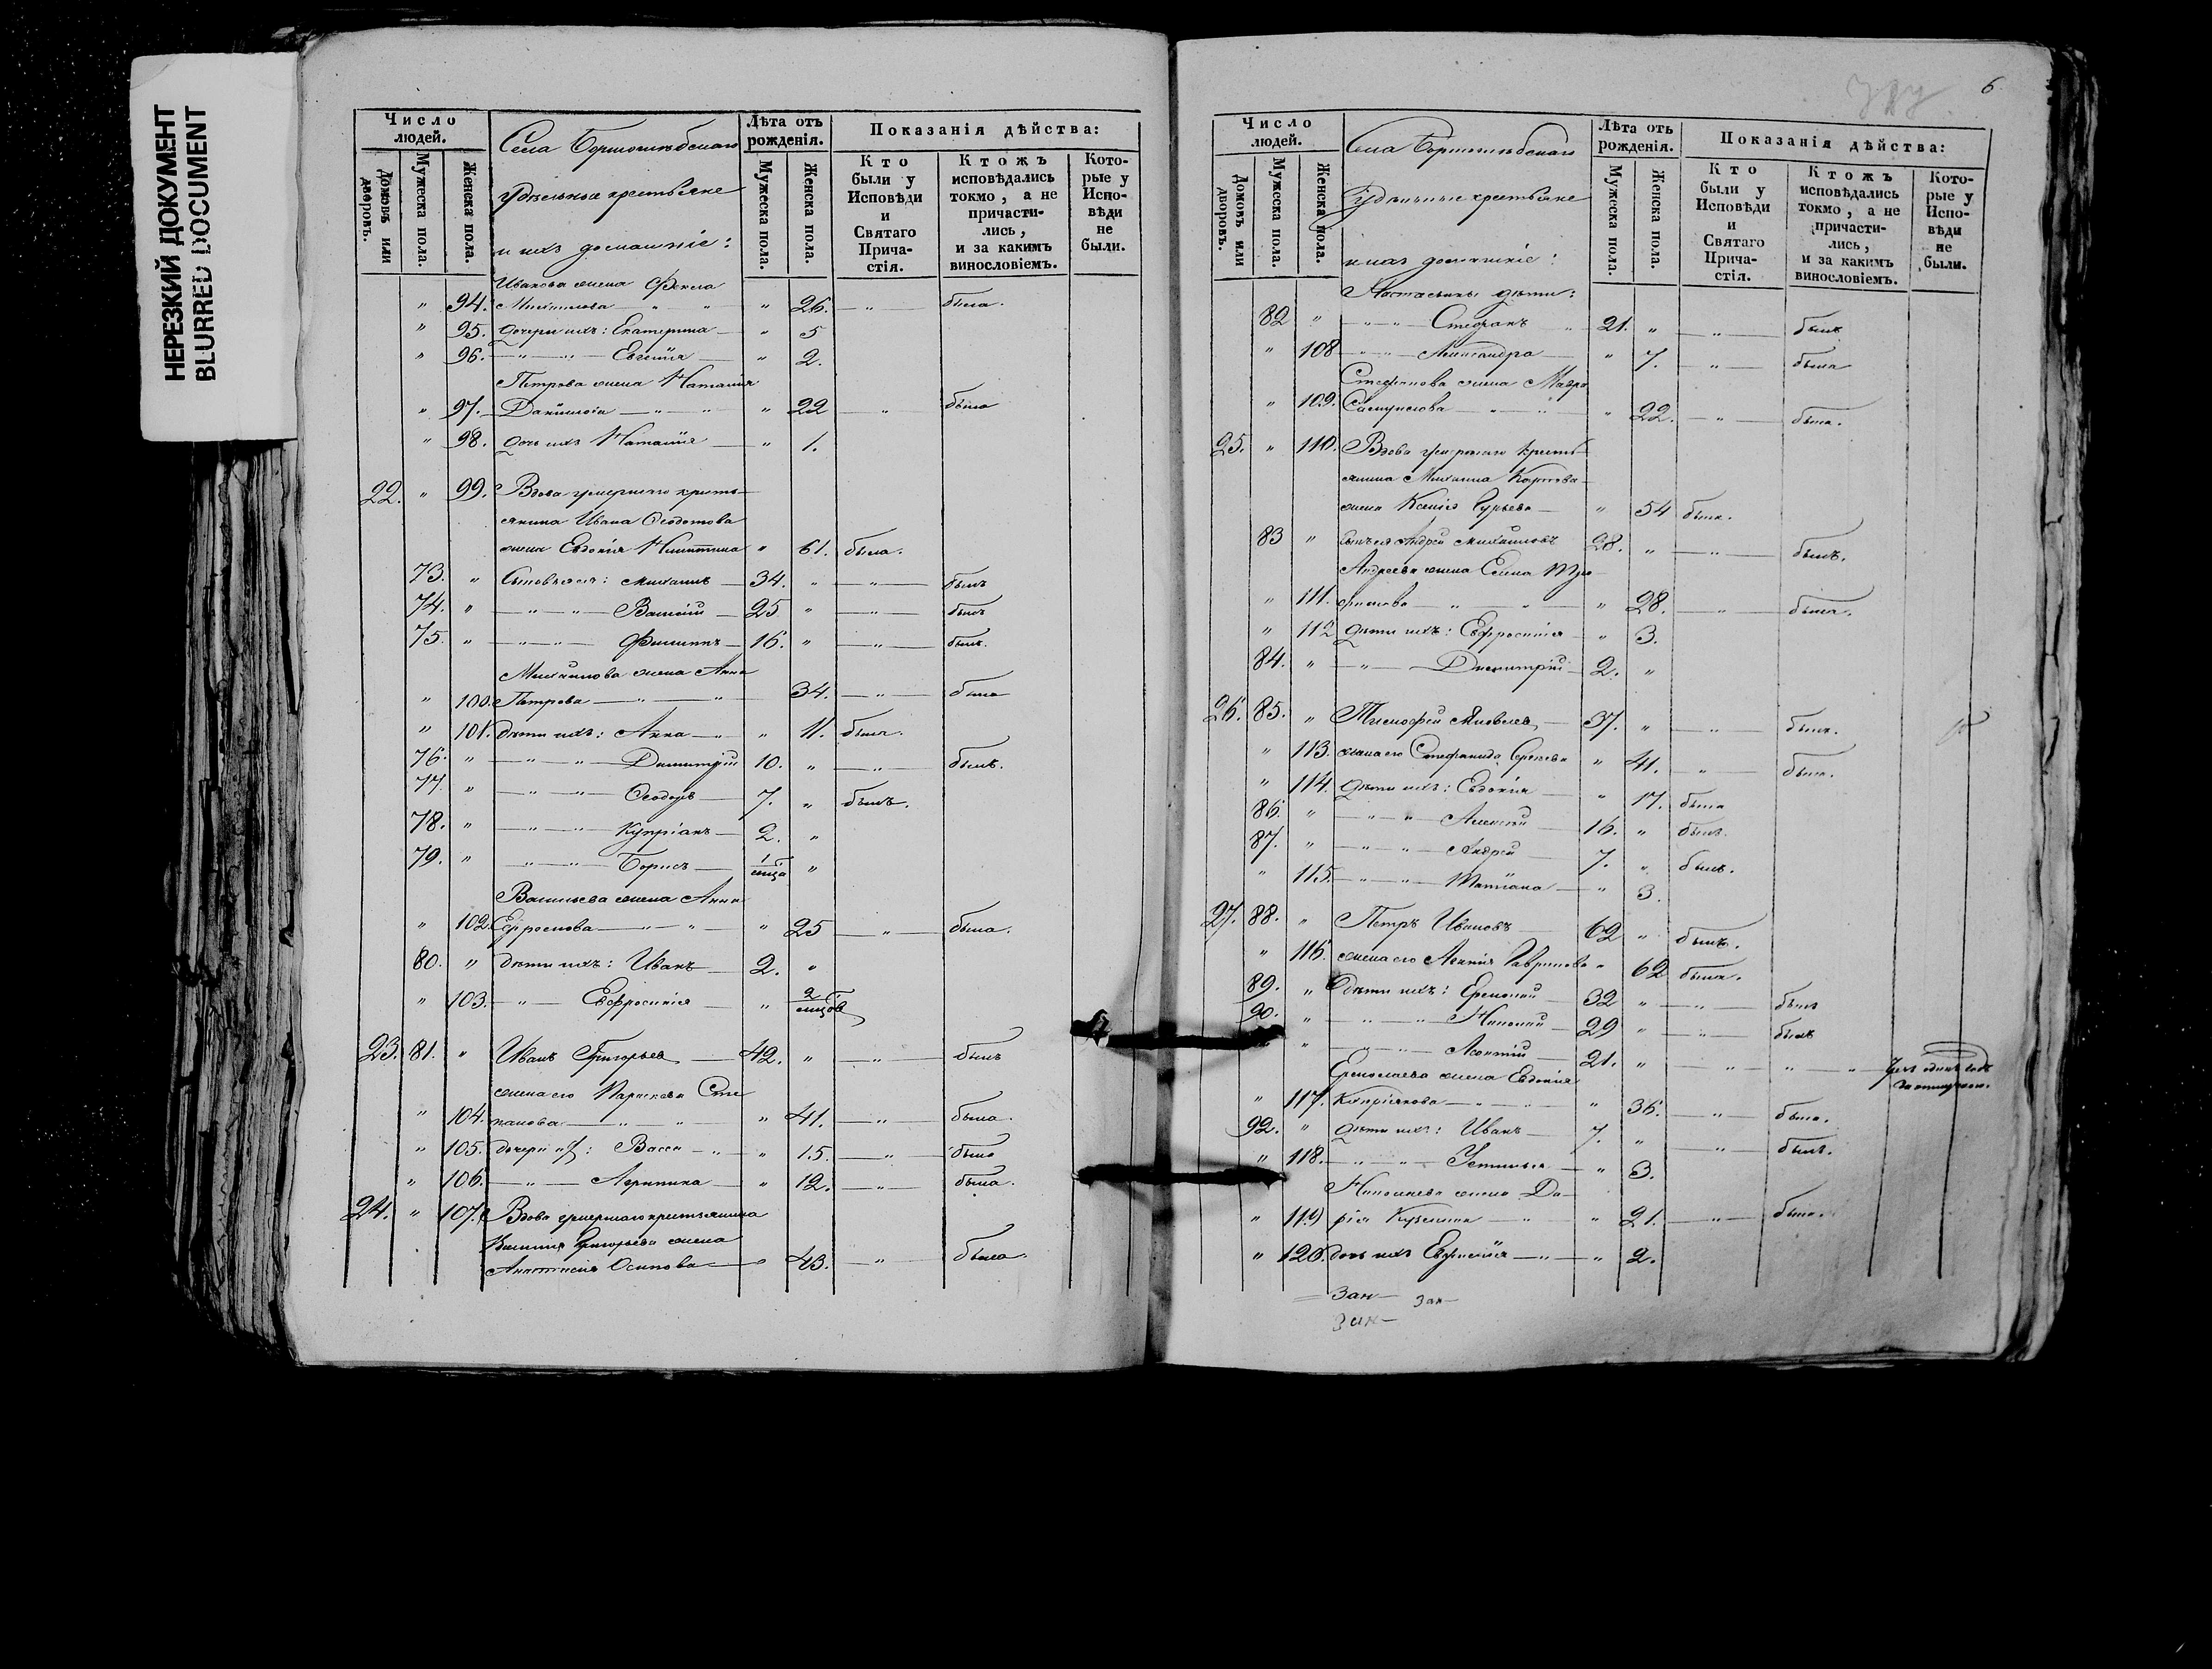 НЕРЕЗКИЙ ДОКУМЕНТ
BLURRED DOCUMENT
Число людей.
Домовъ или дворовъ.
Мужеска пола.
Женска пола.
Села
удѣльные крестьяне
и ихъ домашніе:
Лѣта отъ рожденія.
Мужеска пола.
Женска пола.
Показанія дѣйства:
Кто были у Исповѣди и Святаго Причастія.
Ктожъ исповѣдались токмо, а не причастились, и за какимъ винословіемъ.
Которые у Исповѣди не были.
Иванова жена Фекла
" 94. Михайлова — " — " " 26. — " — была.
" 95. дочери ихъ: Екатерина — " 5
" 96. — " — " — Евгенія — " 2.
Петрова жена Наталія
" 97. Данилова — " — " " 22 — " — была
" 98. дочь ихъ Наталія — " 1.
22. " 99. Вдова умершаго кресть-
янина Ивана Ѳеодотова
жена Евдокія Никитина " 61. была.
73. " Сыновья ея: Михаилъ — 34. " — " — былъ
74. " — " — " — Василій — 25 " — " — былъ
75. " — " — " — Филиппъ — 16. " — " — былъ.
Михайлова жена Анна
" 100. Петрова — " — " 34. — " — была
" 101. дѣти ихъ: Анна — " — " 11. была.
76. " — " — " — Димитрій 10. " — " — былъ.
77. " — " — " — Ѳеодоръ — 7. " былъ.
78. " — " — " — Купріанъ — 2. "
79. " — " — " — Борисъ — 1 "
Васильева жена Анна
" 102. — " — " — " 25 — " — была.
80. " дѣти ихъ: Иванъ — 2. "
" 103. — " — Евфросинія — " 2
23. 81. " Иванъ Григорьевъ — 42. " — " — былъ
жена его Параскева Сте
" 104. панова — " — " — " 41. — " — была.
" 105. дочери ихъ: Васса — " — " 15. — " — была
" 106. — " — Агрипина — " 12. — " — была.
24. " 107. Вдова умершаго крестьянина
Василія Григорьева жена
Анастасія Осипова — " 43. — " — была.
6
Число людей.
Домовъ или дворовъ.
Мужеска пола.
Женска пола.
Села
Удѣльные крестьяне
и ихъ домашніе:
Лѣта отъ рожденія.
Мужеска пола.
Женска пола.
Показанія дѣйства:
Кто были у Исповѣди и Святаго Причастія.
Ктожъ исповѣдались токмо, а не причастились, и за какимъ винословіемъ.
Которые у Исповѣди не были.
Настасьины дѣти:
82 " — " — " — Стефанъ " 21. " — " — былъ
" 108 — " — " — Александра — " 7. — " — была
Стефанова жена Мавра
" 109. Самуилова — " — " " 22. — " — была.
25. " 110. Вдова умершаго кресть-
янина Михаила Карпова
жена Ксенія Гурьева — " 54 была.
83 " сынъ ея Андрей Михайловъ 28. " — " — былъ.
Андреева жена Елена Тро-
" 111. фимова — " — " — " 28. — " — была.
" 112 дѣти ихъ: Евфросинія " 3.
84. " — " — Димитрій — 2. "
26. 85. " Тимофей Яковлевъ — 37. " — " — былъ.
" 113. жена его Стефанида Сергѣева " 41. " — была.
" 114. дѣти ихъ: Евдокія — " 17. была
86. " — " — " Алексѣй — 16. " былъ.
87. " — " — " — Андрей — 7. " былъ.
" 115. — " — " Татіана — " 3.
27. 88. " Петръ Ивановъ 62 " былъ.
" 116. жена его Гаврилова " 62 была.
89. " дѣти ихъ: Ермолай — 32 " — " — былъ
90. " — " — " — Николай — 29 " — " — былъ
" — " — " — Леонтій — 21. " — " — "
Ермолаева жена Евдокія
" 117. Кипріянова — " — " — " 36. — " — была.
92. " дѣти ихъ: Иванъ — 7. " — " — былъ.
" 118. — " — " — Устинья — " 3.
Николаева жена Да-
" 119 рія Кузьмина — " — " 21. — " — была.
" 120. дочь ихъ — " — " 2.
Зан— Зан—
Зан—